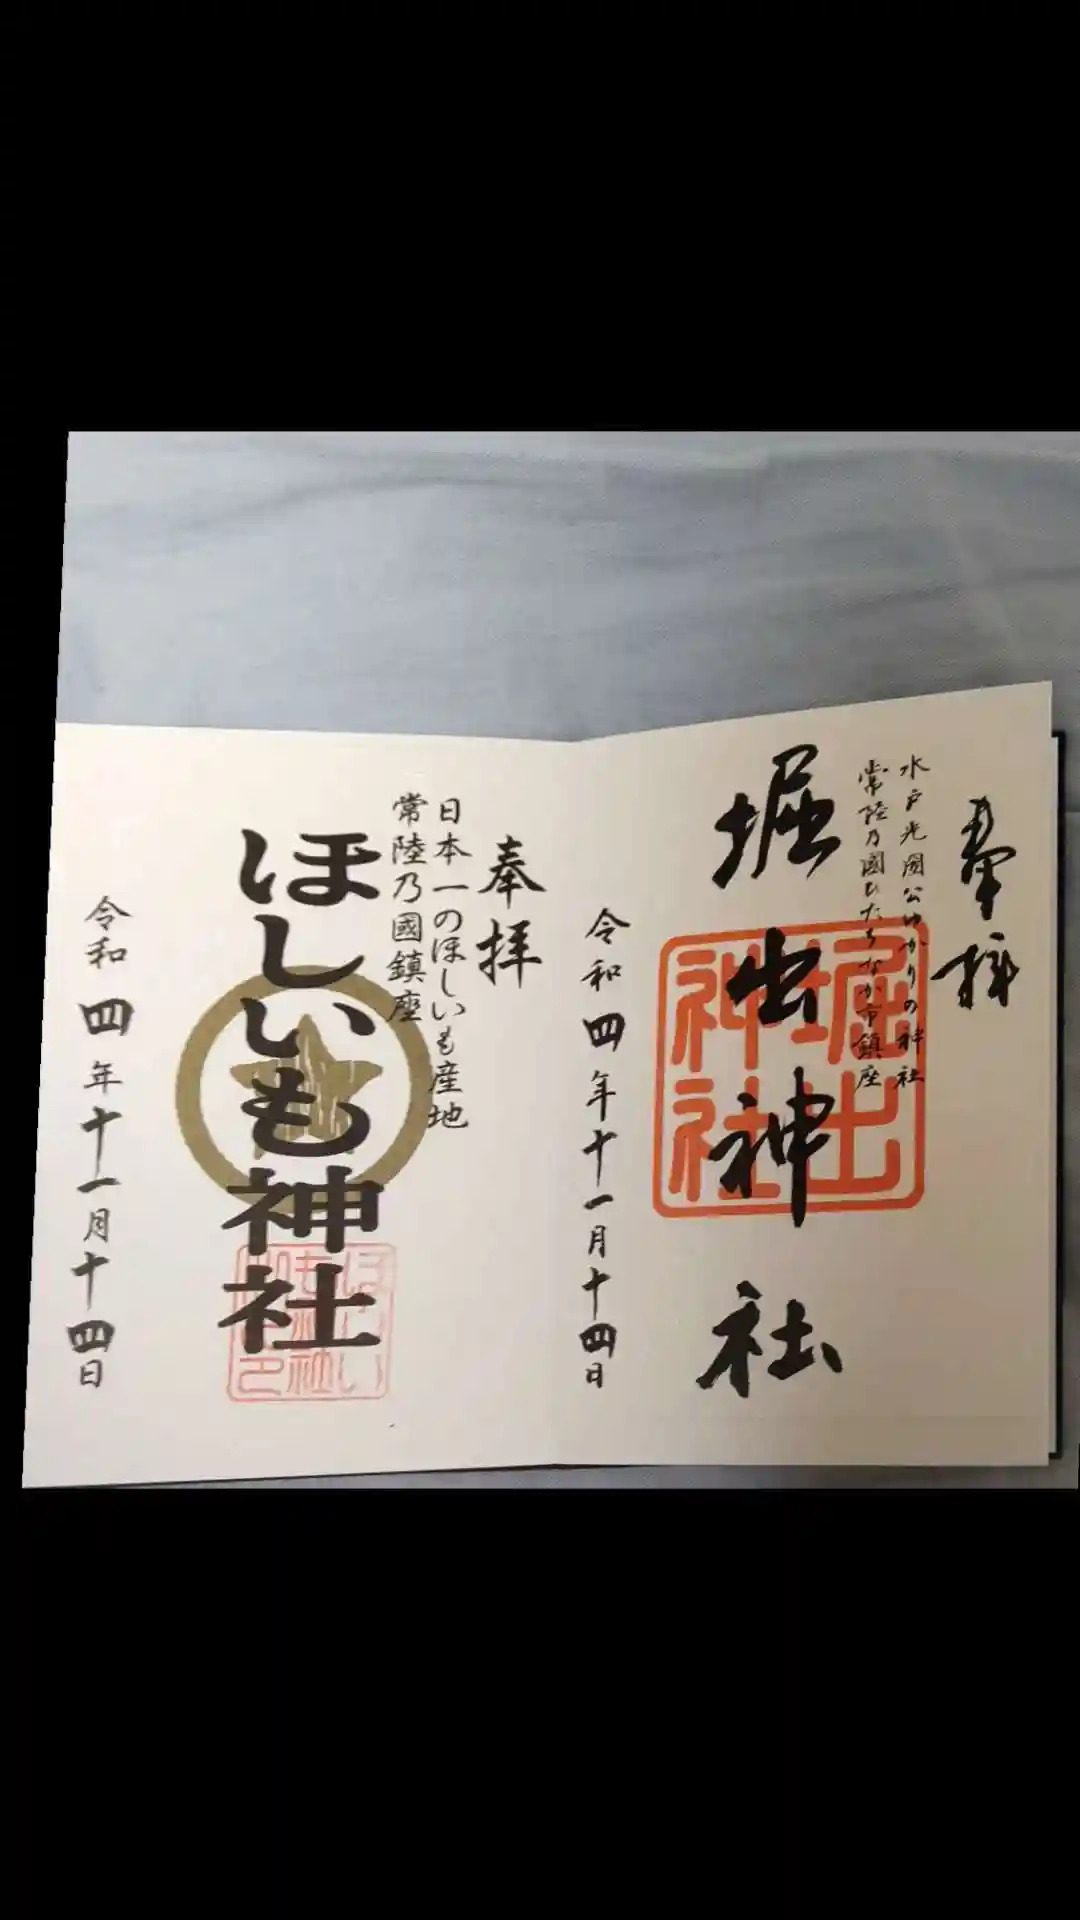 奉拝
水戸光圀公ゆかりの神社
常陸乃國ひたちなか市鎮座
堀出神社
堀出神社
令和四年十一月十四日
奉拝
日本一のほしいも産地
常陸乃國鎮座
ほしいも神社
令和四年十一月十四日